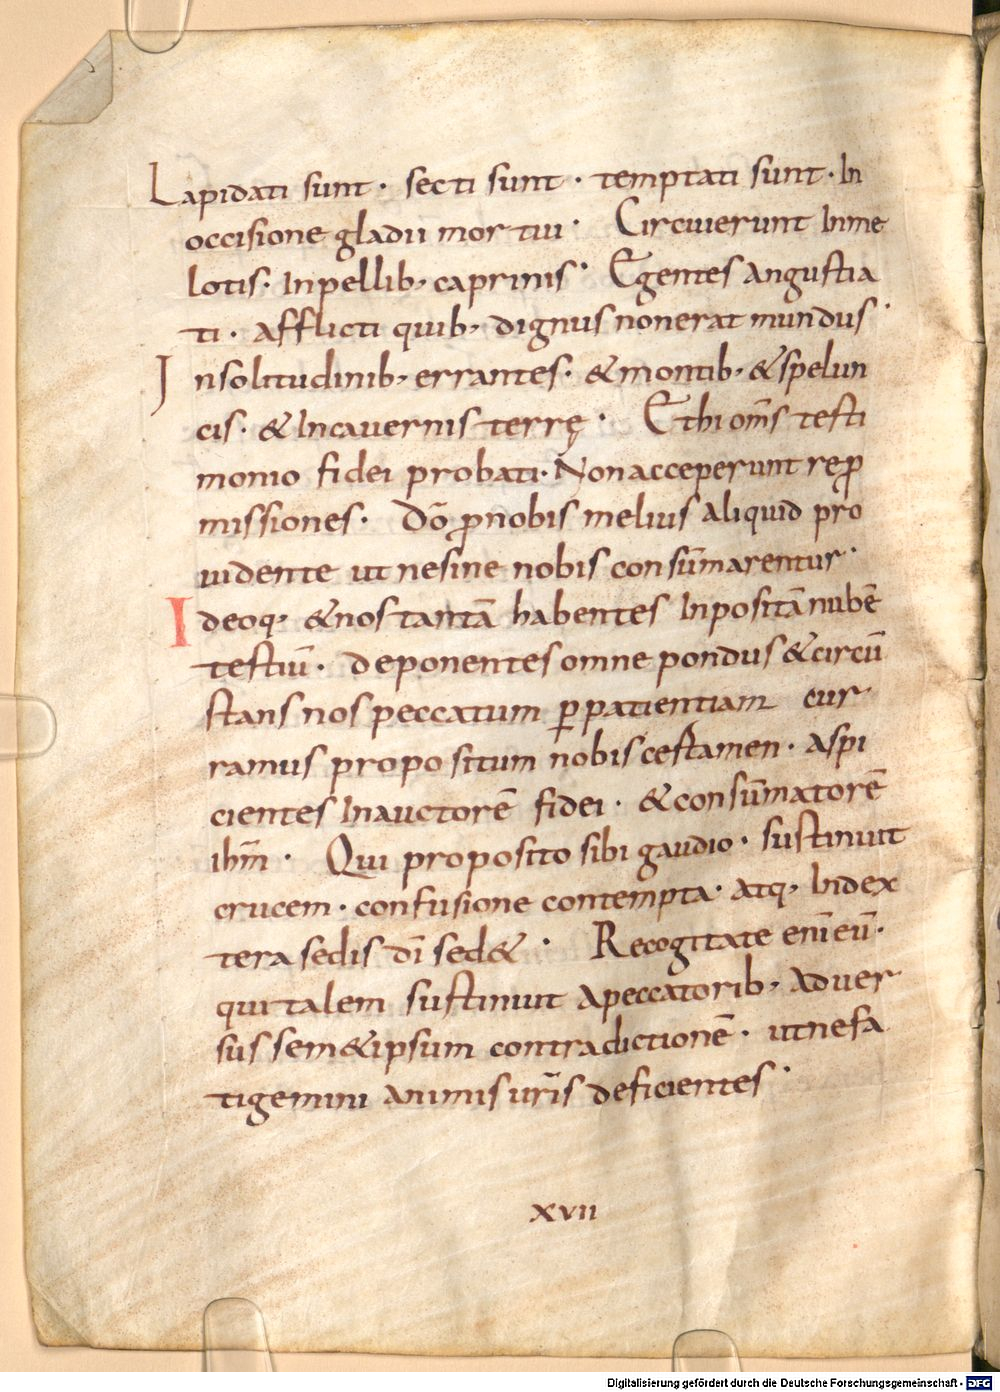 Lapidati sunt · secti sunt · temptati sunt · In
occisione gladii mortui · Circuierunt Inme
lotis · Inpellib; caprinis · Egentes angustia
ti · afflicti quib; dignus nonerat mundus ·
Insolitudinib; errantes · &montib; &spelun
cis · &Incauernis terrę · Ethi om̄s testi
monio fidei probati · Nonacceperunt rep̄
missiones · Dō p̄nobis melius aliquid pro
uidente ut nesine nobis consūmarentur ·
Ideoq; &nos tantā habentes Inpositā nubē
testiū · deponentes omne pondus &circū
stans nos peccatum ꝑpatientiam cur
ramus propositum nobis certamen · aspi
cientes Inauctorē fidei · &consūmatorē
ihm̄ · Qui proposito sibi gaudio · sustinuit
crucem · confusione contempta · atq; Index
tera sedis dī sed& · Recogitate enī eū ·
qui talem sustinuit apeccatorib; aduer
sus sem&ipsum contradictionē · utnefa
tigemini animis ur̄is deficientes ·
xvii
Digitalisierung gefördert durch die Deutsche Forschungsgemeinschaft - DFG